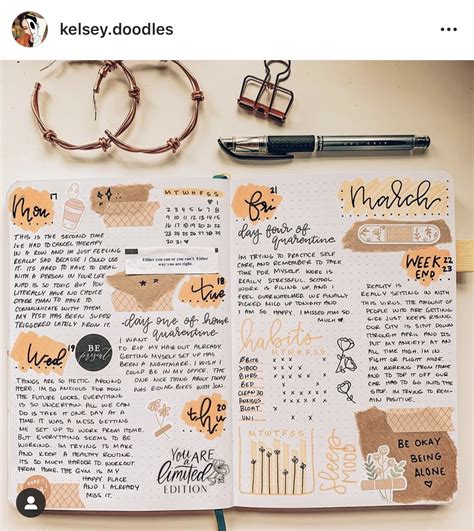 kelsey.doodles
Mon 16
THIS IS THE SECOND TIME
I'VE HAD TO CANCEL THERAPY
IN A ROW AND IM JUST FEELING
REALLY SAD BECAUSE I COULD USE
IT. ITS HARD TO HAVE TO DEAL
WITH A PERSON IN YOUR LIFE
WHO IS SO TOXIC BUT YOU
LITERALLY HAVE NO CHOICE
OTHER THAN TO HAVE TO
COMMUNICATE WITH THEM.
MY PTSD HAS BEEN SUPER
TRIGGERED LATELY FROM IT.
MTWTFSS
1
2 3 4 5 6 7 8
9 10 11 12 13 14 15
16 17 18 19 20 21 22
23 24 25 26 27 28 29
30 31
Either you can or you can't. Either
way you are right.
Tue
day one of home
quarantine
I WANT
TO RIP MY HAIR OUT ALREADY.
GETTING MYSELF SET UP HAS
BEEN A NIGHTMARE. I WISH I
COULD BE IN MY OFFICE. THE
ONE NICE THING ABOUT TODAY
WAS RIDING BIKES WITH
Wed
BE
THINGS ARE SO HECTIC AROUND
HERE. IM SO ANXIOUS FOR HOW
THE FUTURE LOOKS. EVERYTHING
IS SO UNCERTAIN. ALL WE CAN
DO IS TAKE IT ONE DAY AT A
TIME. IT WAS A MESS GETTING
ME SET UP TO WORK FROM HOME.
BUT EVERYTHING SEEMS TO BE
WORKING. IM TRYING TO MAKE
AND KEEP A HEALTHY ROUTINE.
ITS SO MUCH HARDER TO WORKOUT
FROM HOME. THE GYM IS MY
HAPPY PLACE
AND I ALREADY
MISS IT.
Thu
YOU ARE
A limited
EDITION
Fri
day four of
quarantine
IM TRYING TO PRACTICE SELF
CARE, AND REMEMBER TO TAKE
TIME FOR MYSELF. WORK IS
REALLY STRESSFUL. SCHOOL
WORK IS PILING UP, AND I
FEEL OVERWHELMED. WE FINALLY
PICKED MILO UP TONIGHT AND
I AM SO HAPPY. I MISSED HIM SO
MUCH
habits
MTWTFSS
BED
ANXIOUS
BLOAT
MTWTFSS
SLEEP
MOOD
March
WEEK 22
END 23
REALITY IS
REALLY SETTING IN WITH
THIS VIRUS. THE AMOUNT OF
PEOPLE WHO ARE GETTING
SICK JUST KEEPS RISING.
OUR CITY IS SHUT DOWN
THROUGH APRIL AND ITS
PUT MY ANXIETY AT AN
ALL TIME HIGH. IM IN
FIGHT OR FLIGHT MODE.
IM WORKING FROM HOME
AND TO TOP IT OFF OUR
CAR HAS TO GO INTO THE
SHOP. IM TRYING TO REMAIN
POSITIVE.
BE OKAY
BEING
ALONE